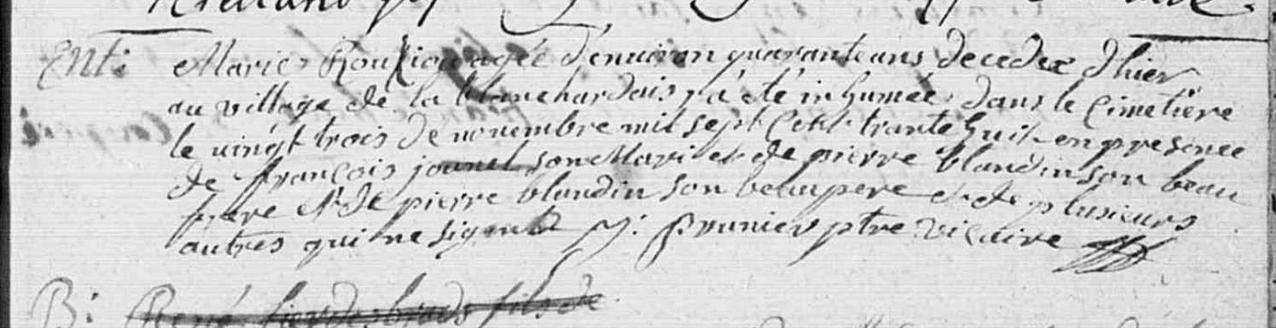 Ent: Marie agée d'environ quarante ans decedee d'hier
au village de la blanchardais a été inhumée dans le Cimetière
le vingt trois de novembre mil sept Cent trante huit en presence
de françois jounel son Mari et de pierre blandin son beau
frere et de pierre blandin son beaupere et de plusieurs
autres qui ne signent J: prunier ptre vicaire
B: René fils de